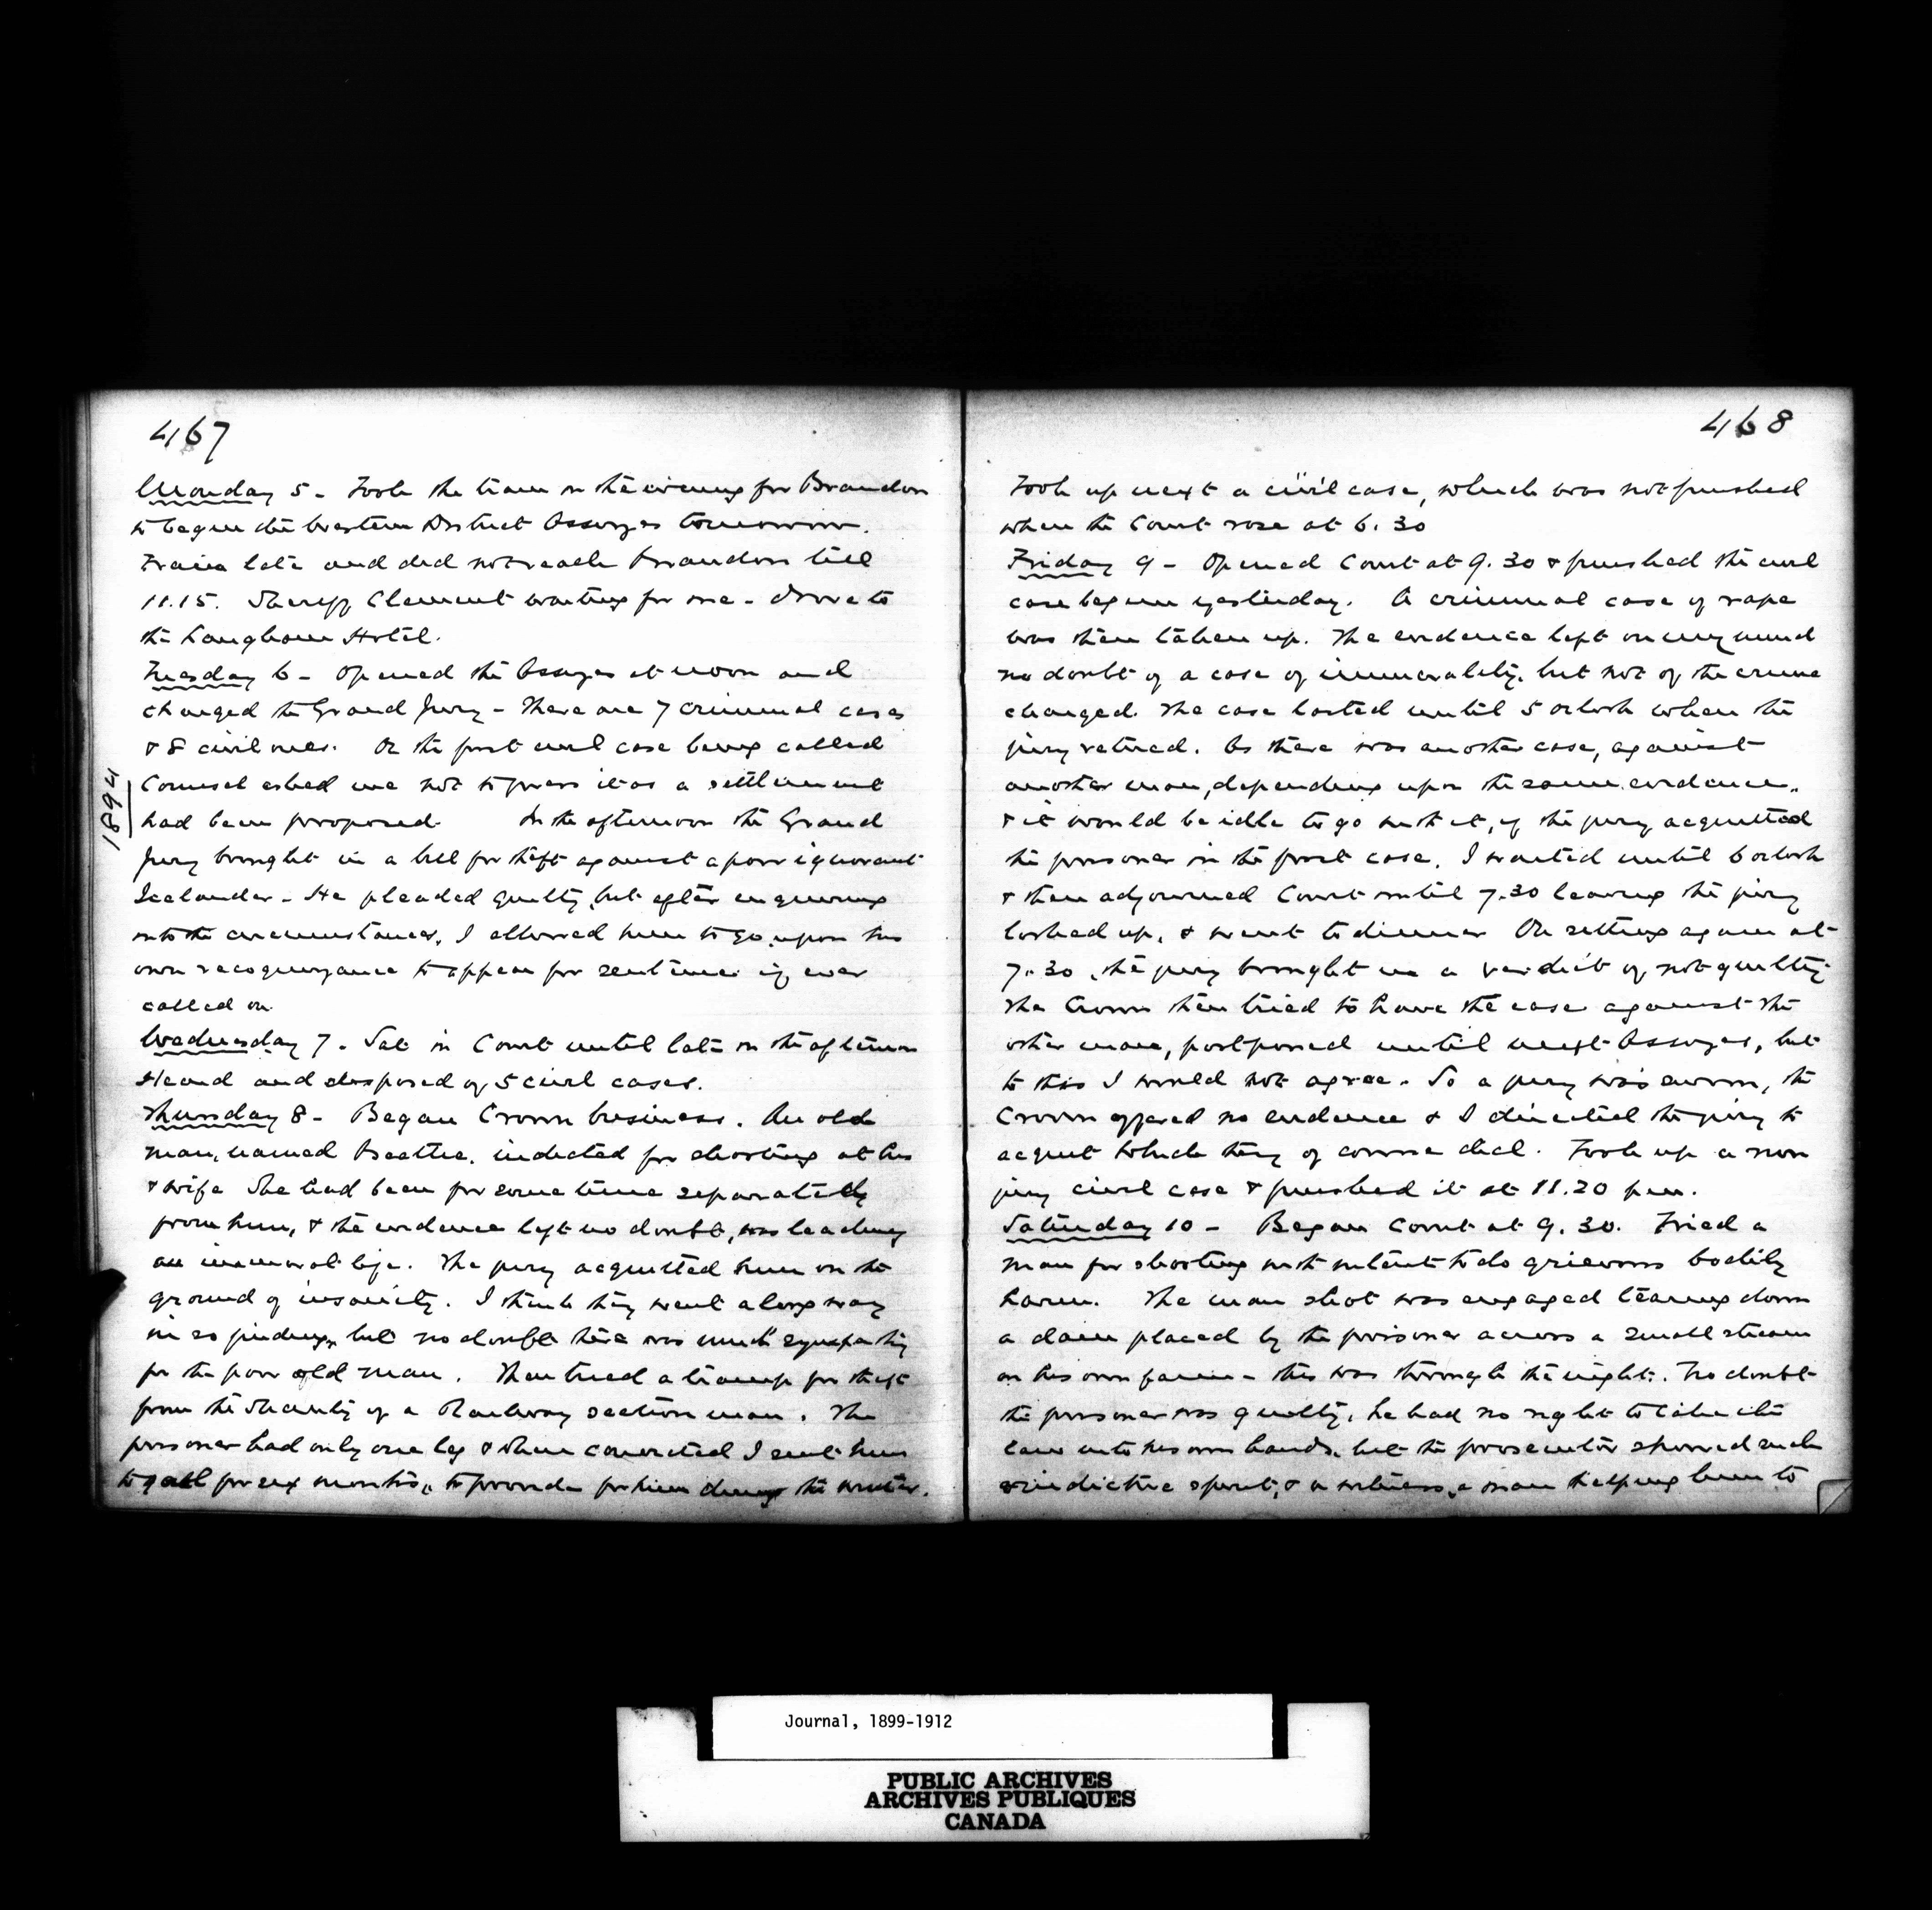 467
Monday 5 - Took the train in the evening for Brandon
to begin the Western District Assizes tomorrow.
Train late and did not reach Brandon till
11.15. Sheriff Clement waiting for me - drove to
the Langham Hotel.
Tuesday 6 - Opened the Assizes at noon and
charged the Grand Jury - There are 7 criminal cases
& 8 civil ones. On the first civil case being called
Counsel asked me not to press it as a settlement
had been proposed. In the afternoon the Grand
Jury brought in a bill for theft against a poor ignorant
Icelander - He pleaded guilty, but after enquiring
into the circumstances, I allowed him to go upon his
own recognizance to appear for sentence if ever
called on.
1894
Wednesday 7 - Sat in Court until late in the afternoon
Heard and disposed of 5 civil cases.
Thursday 8 - Began Crown business. An old
man, named Beattie, indicted for shooting at his
& wife She had been for some time separated
from him, & the evidence left no doubt, was leading
an immoral life. The jury acquitted him on the
ground of insanity. I think they went a long way
in so finding, but no doubt there was much sympathy
for the poor old man. Then tried a tramp for theft
from the Shanty of a Railway section man. The
prisoner had only one leg & when convicted I sent him
to gaol for six months, to provide for him during the winter.
468
Took up next a civil case, which was not finished
when the Court rose at 6.30
Friday 9 - Opened Court at 9.30 & finished the civil
case begun yesterday. A criminal case of rape
was then taken up. The evidence left on my mind
no doubt of a case of immorality, but not of the crime
charged. The case lasted until 5 oclock when the
jury retired. As there was another case, against
another man, depending upon the same evidence,
& it would be idle to go with it, if the jury acquitted
the prisoner in the first case, I waited until 6 oclock
& then adjourned Court until 7.30 leaving the jury
locked up, & went to dinner On sitting again at
7.30, the jury brought in a verdict of not guilty
The Crown then tried to have the case against the
other man, postponed until next Assizes, but
to this I would not agree. So a jury was sworn, the
Crown offered no evidence & I directed the jury to
acquit which they of course did. Took up a non
jury civil case & finished it at 11.20 p.m.
Saturday 10 - Began Court at 9.30. Tried a
man for shooting with intent to do grievous bodily
harm. The man shot was engaged tearing down
a dam placed by the prisoner across a small stream
on his own farm - this was through the night. No doubt
the prisoner was guilty, he had no right to take the
law into his own hands, but the prosecutor showed such
vindictive spirit, & a witness, a man helping him to
Journal, 1899-1912
PUBLIC ARCHIVES
ARCHIVES PUBLIQUES
CANADA